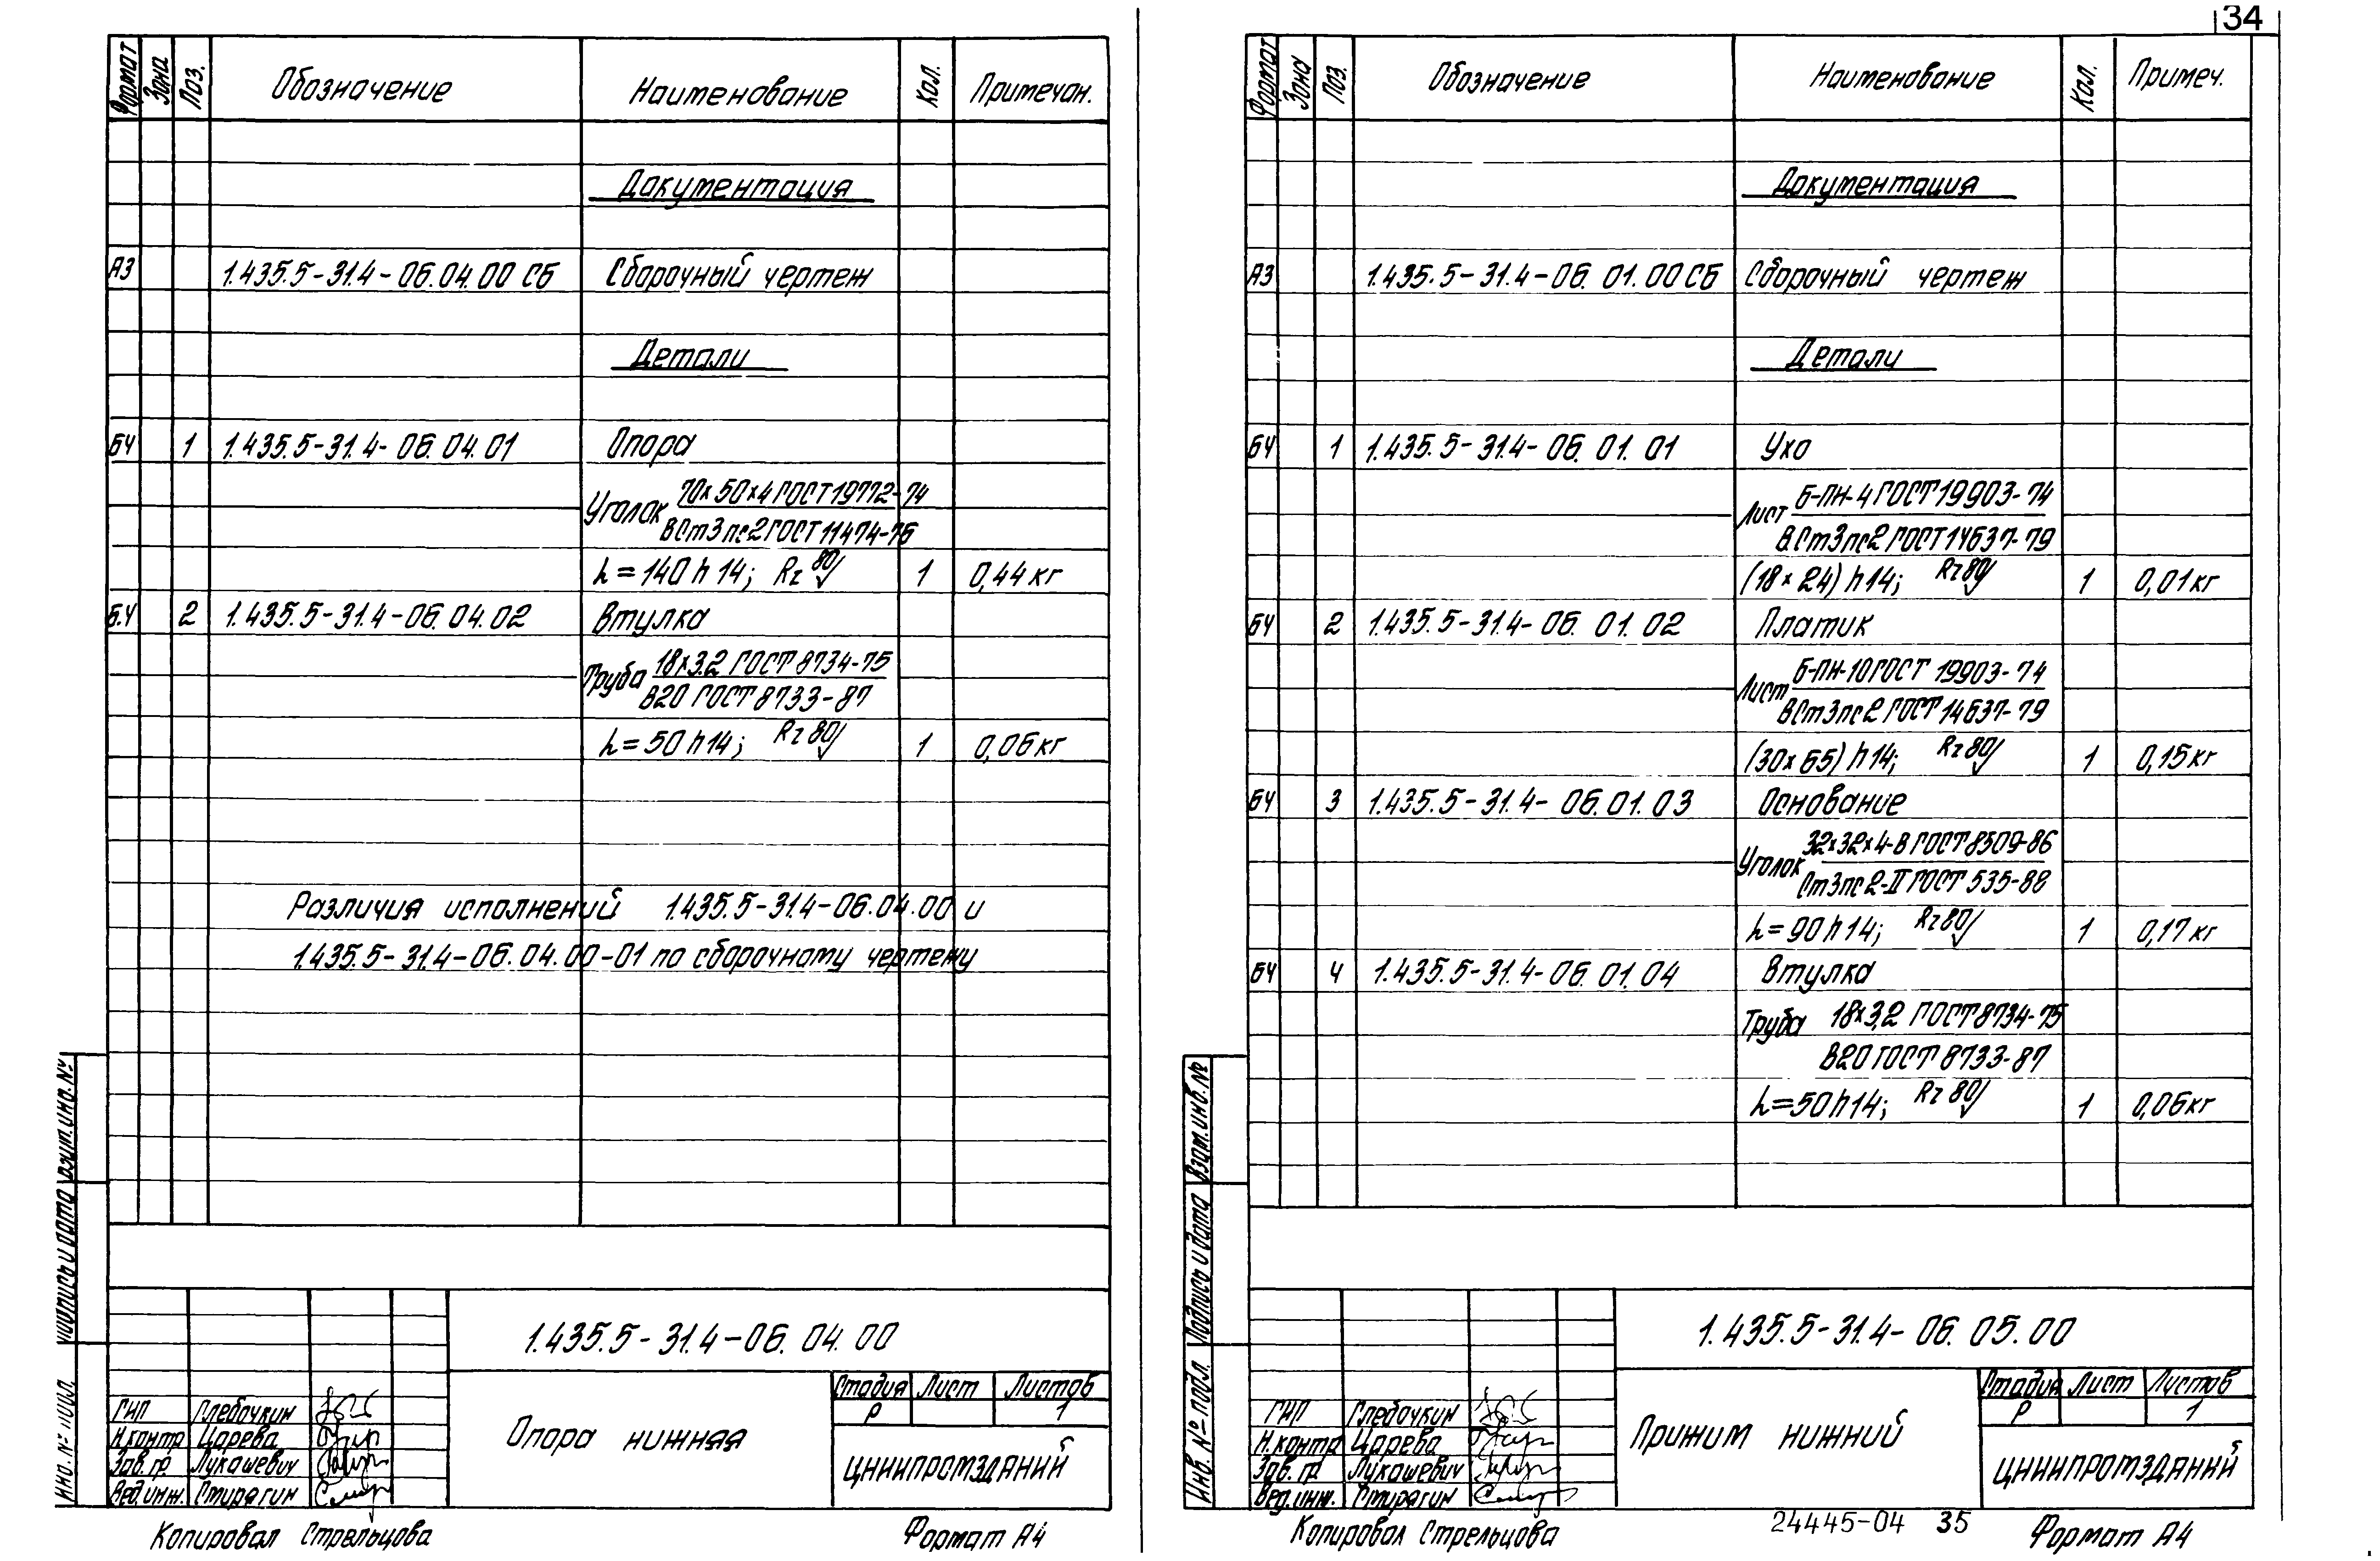 34
Формат Зона Поз. Обозначение Наименование Кол. Примечан.
Документация
А3 1.435.5-31.4-06.04.00 СБ Сборочный чертеж
Детали
БЧ 1 1.435.5-31.4-06.04.01 Опора
Уголок 70×50×4 ГОСТ 19772-74
ВСт3пс2 ГОСТ 11474-76
L=140h14; Rz80 1 0,44кг
Б.Ч 2 1.435.5-31.4-06.04.02 Втулка
Труба 18×3,2 ГОСТ 8734-75
В20 ГОСТ 8733-87
L=50h14; Rz80 1 0,06кг
Различия исполнений 1.435.5-31.4-06.04.00 и
1.435.5-31.4-06.04.00-01 по сборочному чертежу
Инв. № подл. Подпись и дата Взам.инв.№
1.435.5-31.4-06.04.00
ГИП Глебочкин
Н.контр Царева
Зав.гр Лукашевич
Вед.инж. Стирагин
Опора нижняя
Стадия Лист Листов
Р 1
ЦНИИПРОМЗДАНИЙ
Копировал Стрельцова Формат А4
Формат Зона Поз. Обозначение Наименование Кол. Примеч.
Документация
А3 1.435.5-31.4-06.01.00СБ Сборочный чертеж
Детали
БЧ 1 1.435.5-31.4-06.01.01 Ухо
Лист Б-ПН-4 ГОСТ 19903-74
ВСт3пс2 ГОСТ 14637-79
(18×24)h14; Rz80 1 0,01кг
БЧ 2 1.435.5-31.4-06.01.02 Платик
Лист Б-ПН-10 ГОСТ 19903-74
ВСт3пс2 ГОСТ 14637-79
(30×65)h14; Rz80 1 0,15кг
БЧ 3 1.435.5-31.4-06.01.03 Основание
Уголок 32×32×4-В ГОСТ 8509-86
Ст3пс2-II ГОСТ 535-88
L=90h14; Rz80 1 0,17кг
БЧ 4 1.435.5-31.4-06.01.04 Втулка
Труба 18×3,2 ГОСТ 8734-75
В20 ГОСТ 8733-87
L=50h14; Rz80 1 0,06кг
Инв. № подл. Подпись и дата Взам.инв.№
1.435.5-31.4-06.05.00
ГИП Глебочкин
Н.контр Царева
Зав.гр Лукашевич
Вед.инж. Стирагин
Прижим нижний
Стадия Лист Листов
Р 1
ЦНИИПРОМЗДАНИЙ
Копировал Стрельцова 24445-04 35 Формат А4